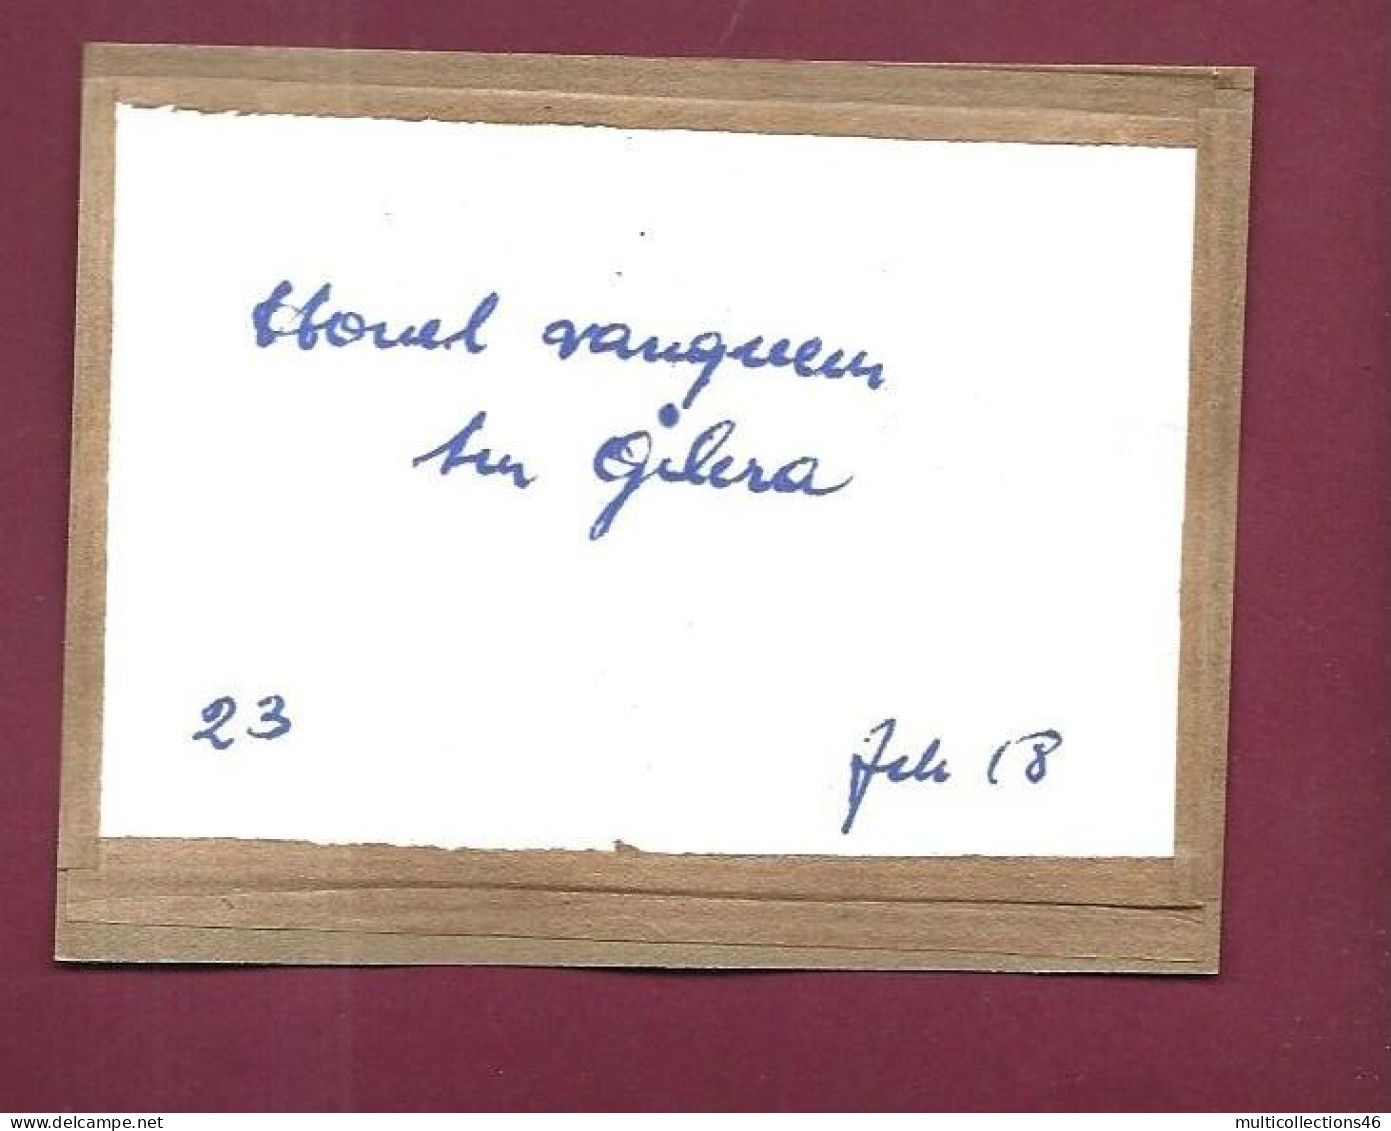 vanqueur
sur Gilera
23
18
www.delcampe.net
multicollections46